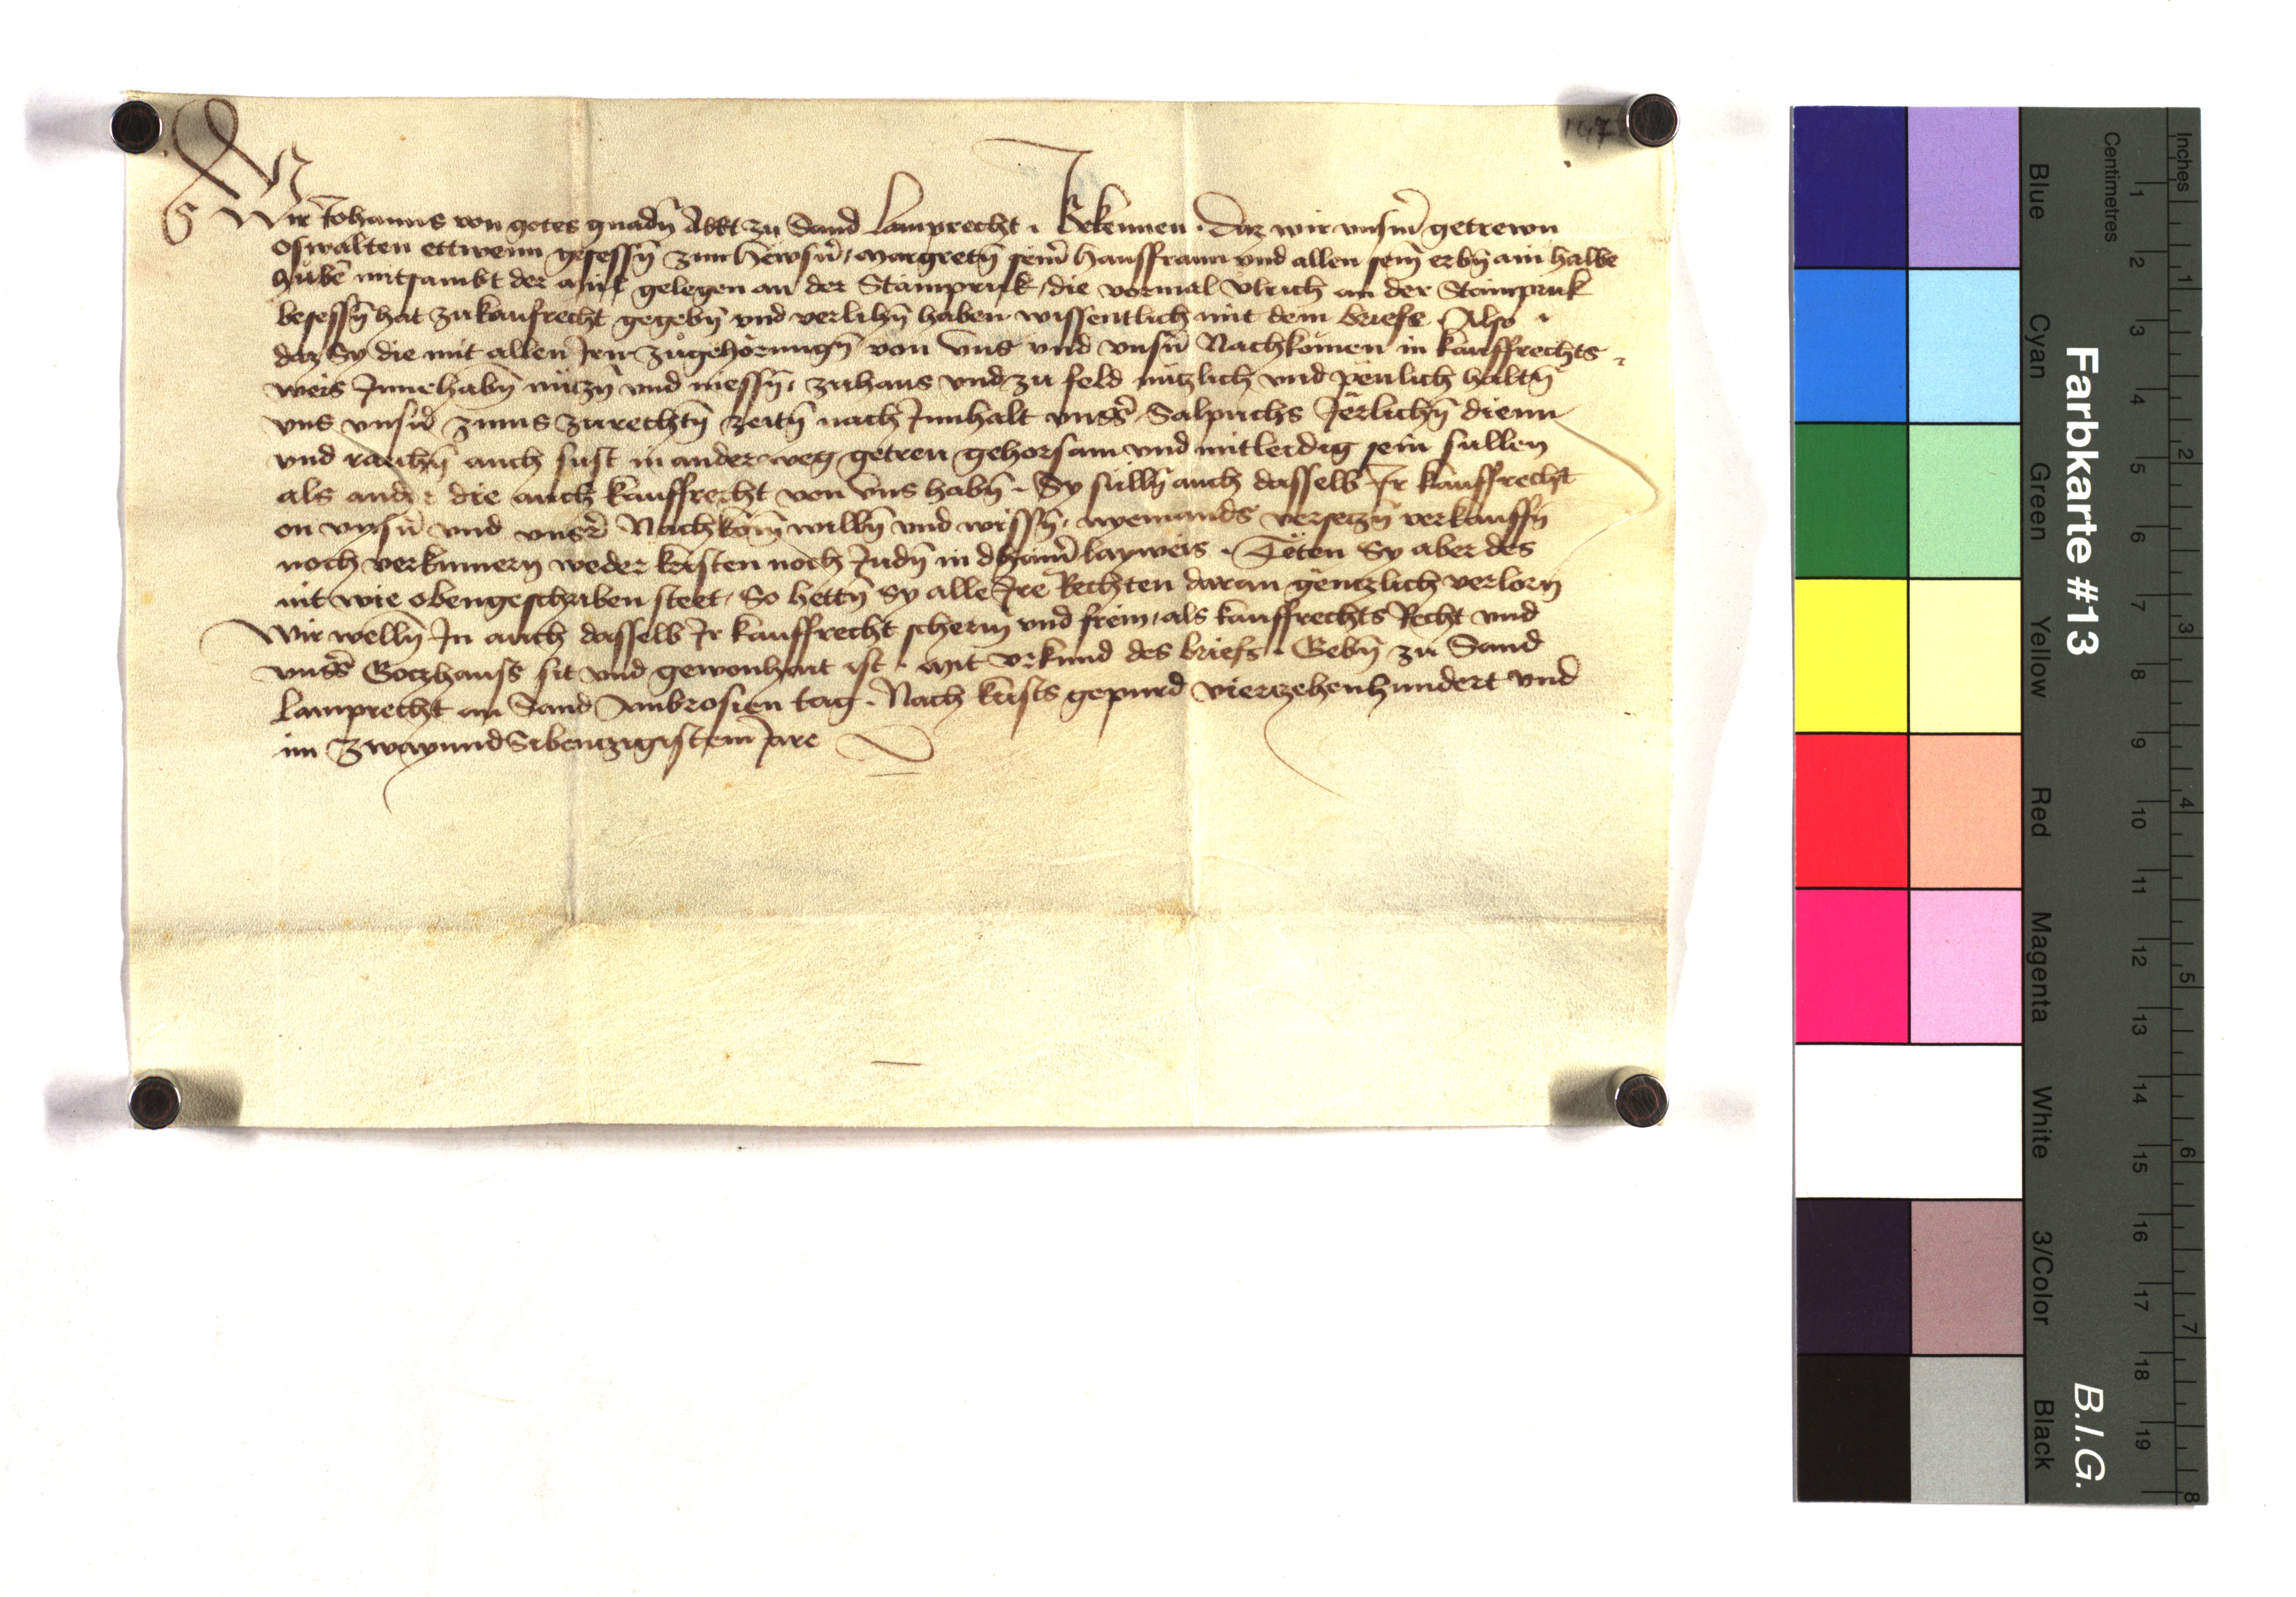 147
Wir Johanns von gotes gnadn̄ Abbt zu Sand Lamprecht · Bekennen · Daz wir vnsm̄ getrewn
Oswalten ettwenn gesessn̄ zum hewsn̄ / Margretn̄ seinr̄ hausfrawn vnd allen sein̄ erbn̄ ain halbe
hubē mitsambt der mül gelegen an der Stampruk / die vormal Vlrich an der Stainpruk
besessn̄ hat zu kaufrecht gegebn̄ vnd verlihn̄ haben wissentlich mit dem briefe · Also ·
daz Sy die mit allen Jrn zugehörungn̄ von vns vnd vnsn̄ Nachkömen in kauffrechts
weis Jnnehabn̄ nützn̄ vnd niessn̄ · zuhaus vnd zu feld nützlich vnd peulich haltn̄
vns vnsn̄ zinns zu rechtn̄ zeitn̄ nach Jnnhalt vnsr̄s Salpuchs Jërlichn̄ dienn
vnd raichn̄ auch sust in ander weg getreu gehorsam vnd mitleidig sein sullen
als ander die auch kauffrecht von vns habn̄ · Sy sülln̄ auch dasselb Jr kauffrecht
on vnsn̄ vnd vnsrr̄ Nachköm̄ willn̄ vnd wissn̄ · nyemands versetzn̄ verkauffn̄
noch verkumern weder kristen noch Judn̄ in dhainr̄lay weis · Tëten Sy aber des
nit wie obengeschriben steet · So hettn̄ Sy alle Jre Rechten daran gëntzlich verlorn
Wir welln̄ Jn auch dasselb Jr kauffrecht scherm vnd freim / als kauffrechts Recht vnd
vnsr̄s Gotzhauss sit vnd gewonhait ist · Mit vrkund des briefs · Gebn̄ zu Sand
Lamprecht an Sand Ambrosien tag · Nach krists gepurd vierzehenhundert vnd
im Zwayundsibentzigistem Jare
Inches
Centimetres
Blue
Cyan
Green
Yellow
Red
Magenta
White
3/Color
Black
Farbkarte #13
B.I.G.
1
2
3
4
5
6
7
8
9
10
11
12
13
14
15
16
17
18
19
1
2
3
4
5
6
7
8